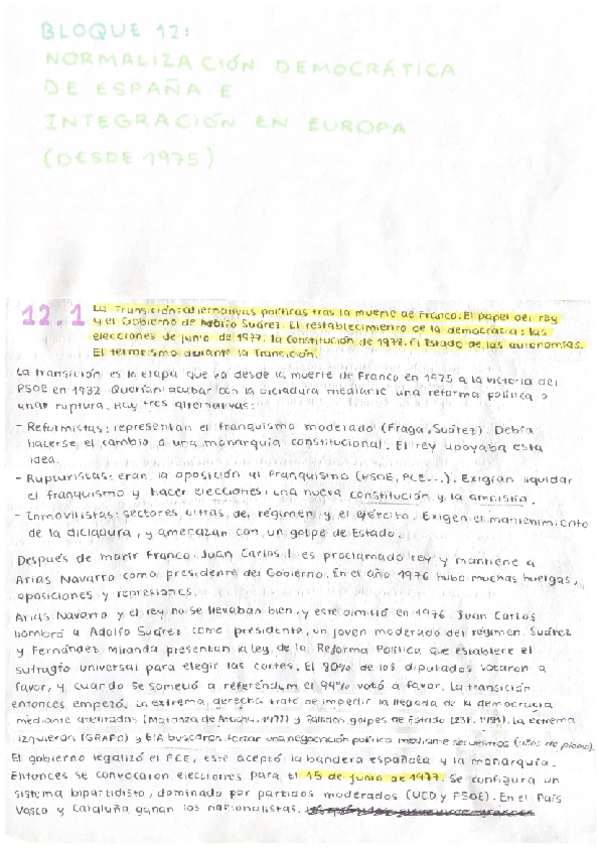 BLOQUE 12:
NORMALIZACIÓN DEMOCRÁTICA
DE ESPAÑA E
INTEGRACIÓN EN EUROPA
(DESDE 1975)
12.1 La Transición: alternativas políticas tras la muerte de Franco. El papel del rey
y el Gobierno de Adolfo Suárez. El restablecimiento de la democracia: las
elecciones de junio de 1977. la Constitución de 1978. El Estado de las autonomías.
El terrorismo durante la Transición.
La transición es la etapa que va desde la muerte de Franco en 1975 a la victoria del
PSOE en 1982. Querían acabar con la dictadura mediante una reforma política o
una ruptura. Hay tres alternativas:
- Reformistas: representan el franquismo moderado (Fraga, Suárez). Debía
hacerse el cambio a una monarquía constitucional. El rey apoyaba esta
idea.
- Rupturistas: eran la oposición al franquismo (PSOE, PCE...). Exigían liquidar
el franquismo y hacer elecciones, una nueva constitución y la amnistía.
- Inmovilistas: sectores ultras, del régimen y el ejército. Exigen el mantenimiento
de la dictadura, y amenazan con un golpe de Estado.
Después de morir Franco, Juan Carlos I es proclamado rey y mantiene a
Arias Navarro como presidente del Gobierno. En el año 1976 hubo muchas huelgas,
oposiciones y represiones.
Arias Navarro y el rey no se llevaban bien, y este dimitió en 1976. Juan Carlos
nombró a Adolfo Suárez como presidente, un joven moderado del régimen. Suárez
y Fernández Miranda presentan la ley de la Reforma Política que establece el
sufragio universal para elegir las cortes. El 80% de los diputados votaron a
favor, y cuando se sometió a referéndum el 94% votó a favor. La transición
entonces empezó. La extrema derecha trató de impedir la llegada de la democracia
mediante atentados (Matanza de Atocha, 1977) y fallidos golpes de Estado (23F, 1981). La extrema
izquierda (GRAPO) y ETA buscaron forzar una negociación política mediante secuestros (años de plomo).
El gobierno legalizó el PCE, este aceptó la bandera española y la monarquía.
Entonces se convocaron elecciones para el 15 de junio de 1977. Se configura un
sistema bipartidista, dominado por partidos moderados (UCD y PSOE). En el País
Vasco y Cataluña ganan los nacionalistas.